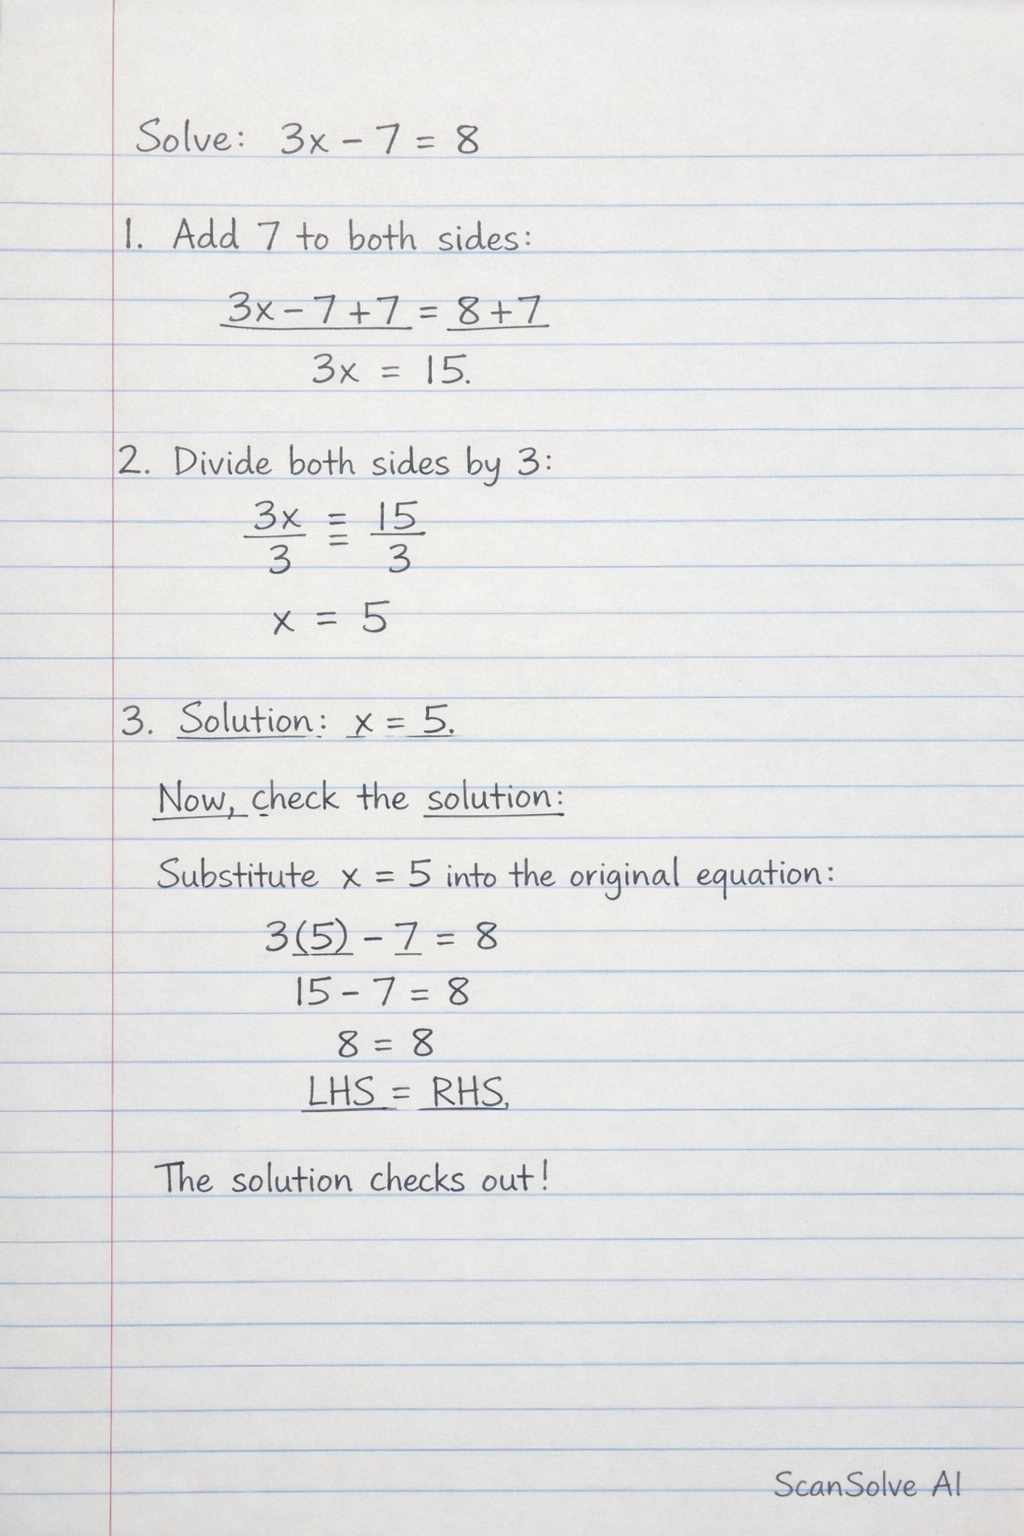 Solve: 3x - 7 = 8
1. Add 7 to both sides:
3x - 7 + 7 = 8 + 7
3x = 15.
2. Divide both sides by 3:
3x/3 = 15/3
x = 5
3. Solution: x = 5.
Now, check the solution:
Substitute x = 5 into the original equation:
3(5) - 7 = 8
15 - 7 = 8
8 = 8
LHS = RHS.
The solution checks out!
ScanSolve AI